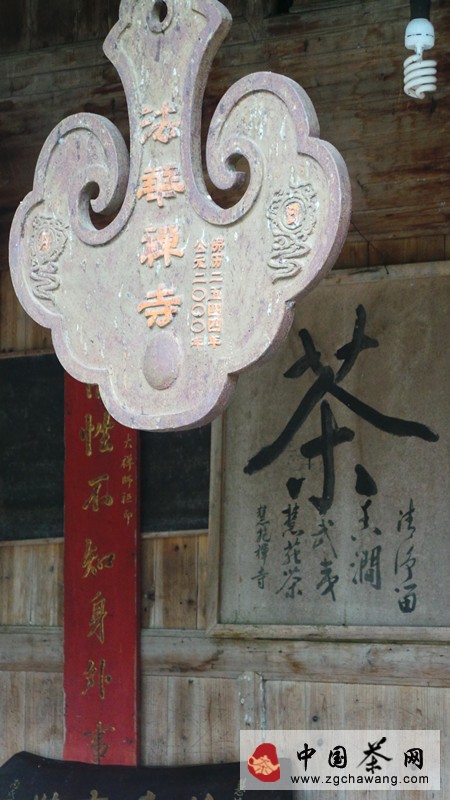 法華禪寺
二五四四年
公元二〇〇〇年
日
月
性不知身外事
茶
清淨留
澗
武夷
慧苑茶
慧苑禪寺
中国茶网
www.zgchawang.com